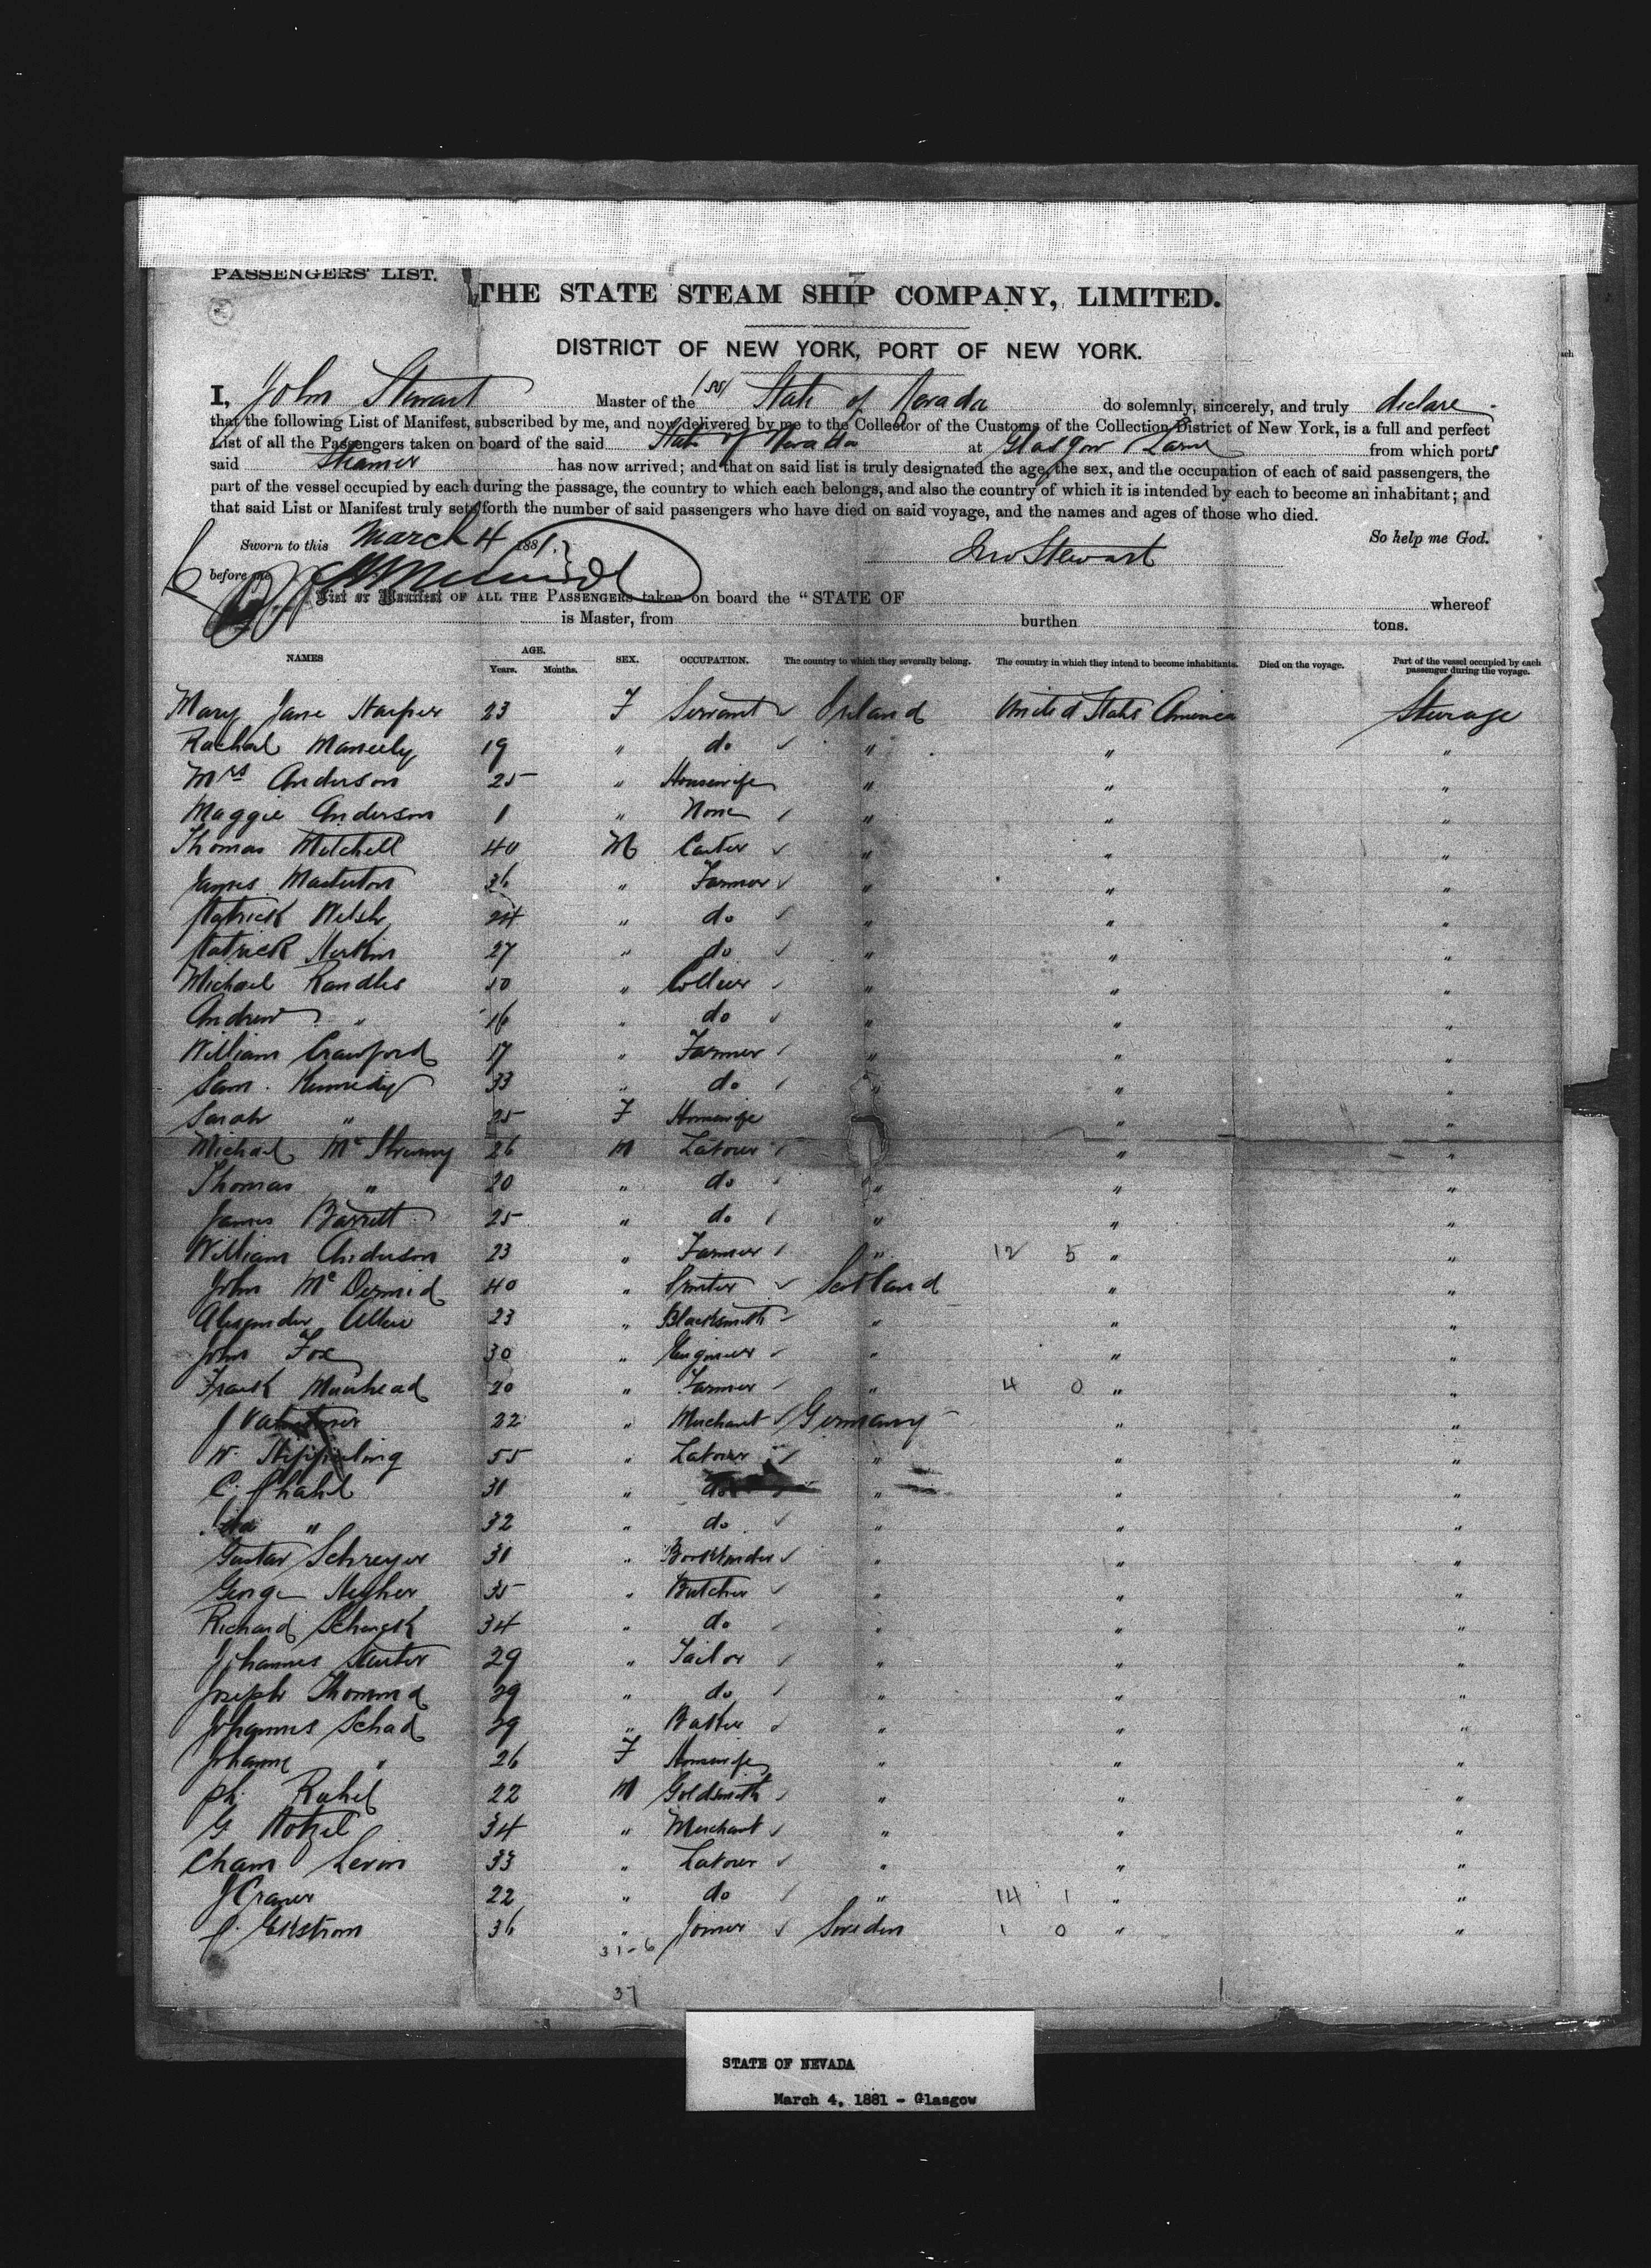 PASSENGERS' LIST.
THE STATE STEAM SHIP COMPANY, LIMITED.
DISTRICT OF NEW YORK, PORT OF NEW YORK.
I, John Stewart Master of the SS State of Nevada do solemnly, sincerely, and truly declare
that the following List of Manifest, subscribed by me, and now delivered by me to the Collector of the Customs of the Collection District of New York, is a full and perfect
List of all the Passengers taken on board of the said State of Nevada at Glasgow Larne from which ports
said Steamer has now arrived; and that on said list is truly designated the age, the sex, and the occupation of each of said passengers, the
part of the vessel occupied by each during the passage, the country to which each belongs, and also the country of which it is intended by each to become an inhabitant; and
that said List or Manifest truly sets forth the number of said passengers who have died on said voyage, and the names and ages of those who died.
So help me God.
Sworn to this March 4 1881. Jno Stewart
before me
List or Manifest OF ALL THE PASSENGERS taken on board the "STATE OF whereof
is Master, from burthen tons.
NAMES AGE. Years. Months. SEX. OCCUPATION. The country to which they severally belong. The country in which they intend to become inhabitants. Died on the voyage. Part of the vessel occupied by each passenger during the voyage.
Mary Jane Harper 23 F Servant Ireland United States America Steerage
Rachel 19 " do " " "
Mrs Anderson 25 " Housewife " " "
Maggie Anderson 1 " None " " "
Thomas Mitchell 40 M Carter " " "
James Masterton 36 " Farmer " " "
Patrick Welsh 24 " do " " "
Patrick 27 " do " " "
Michael Randles 50 " Collier " " "
Andrew " 16 " do " " "
William Crawford 17 " Farmer " " "
Sam. Kennedy 33 " do " " "
Sarah " 25 F Housewife " "
Michael 26 M Labourer " "
Thomas " 20 " do " " "
James Barrett 25 " do " " "
William Anderson 23 " Farmer " 12 5 " "
John McDermid 40 " Printer Scotland " "
Alexander 23 " Blacksmith " " "
John Fox 30 " Engineer " " "
Frank Muirhead 20 " Farmer " 4 0 " "
J 22 " Merchant Germany " "
W. 55 " Labourer " " "
C. 31 " do " " "
" 32 " do " " "
Gustav Schreyer 31 " Bookbinder " " "
George 35 " Butcher " " "
Richard 34 " do " " "
Johannes 29 " Tailor " " "
Joseph 29 " do " " "
Johannes Schad 29 " Baker " " "
Johanne " 26 F Housewife " " "
Ph. 22 M Goldsmith " " "
G. 34 " Merchant " " "
Cham Levin 33 " Labourer " " "
J Craner 22 " do " 14 1 " "
Ekstrom 36 " Joiner Sweden 1 0 " "
31-6
37
STATE OF NEVADA
March 4, 1881 - Glasgow